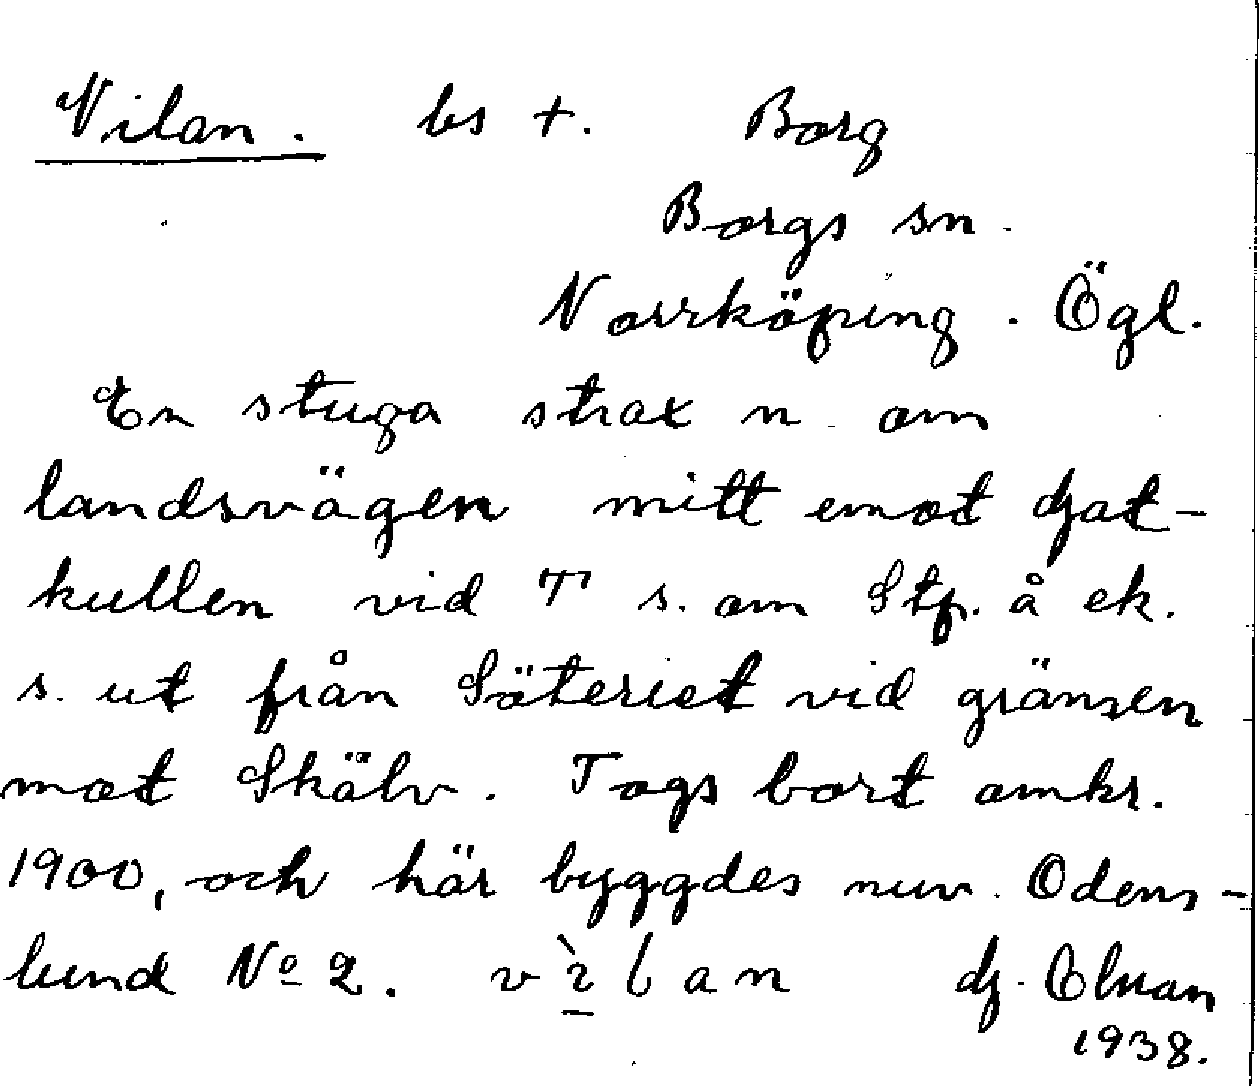 Vilan. bs +. Borg
Borgs sn.
Norrköping. Ögl.
En stuga strax n. om
landsvägen mitt emot
kullen vid T s. om Stp. å ek.
s. ut från Säteriet vid gränsen
mot Skälv. Togs bort omkr.
1900, och här byggdes nuv. Odens-
lund No 2. v ì l a n
1938.